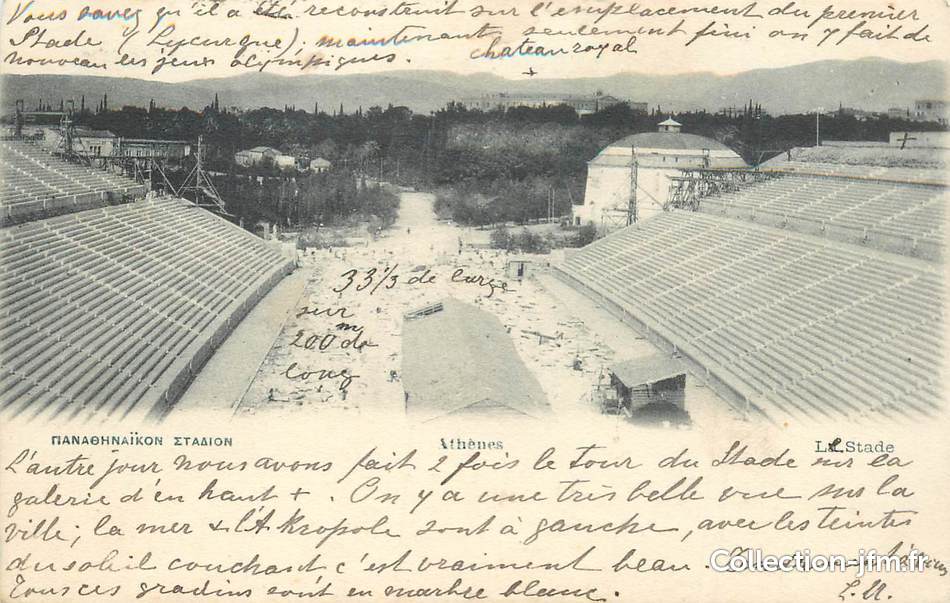 Vous savez qu'il a été reconstruit sur l'emplacement du premier
Stade (Lycurgue); maintenant, seulement fini on y fait de
nouveau les jeux olympiques.
chateau royal
+
33 1/3 de large
sur
200m de
long
ΠΑΝΑΘΗΝΑΪΚΟΝ ΣΤΑΔΙΟΝ
Athènes
Le Stade
L'autre jour nous avons fait 2 fois le tour du Stade sur la
galerie d'en haut +. On y a une très belle vue sur la
ville; la mer & l'Akropole sont à gauche, avec les teintes
du soleil couchant c'est vraiment beau.
Tous ces gradins sont en marbre blanc.
Collection-jfm.fr